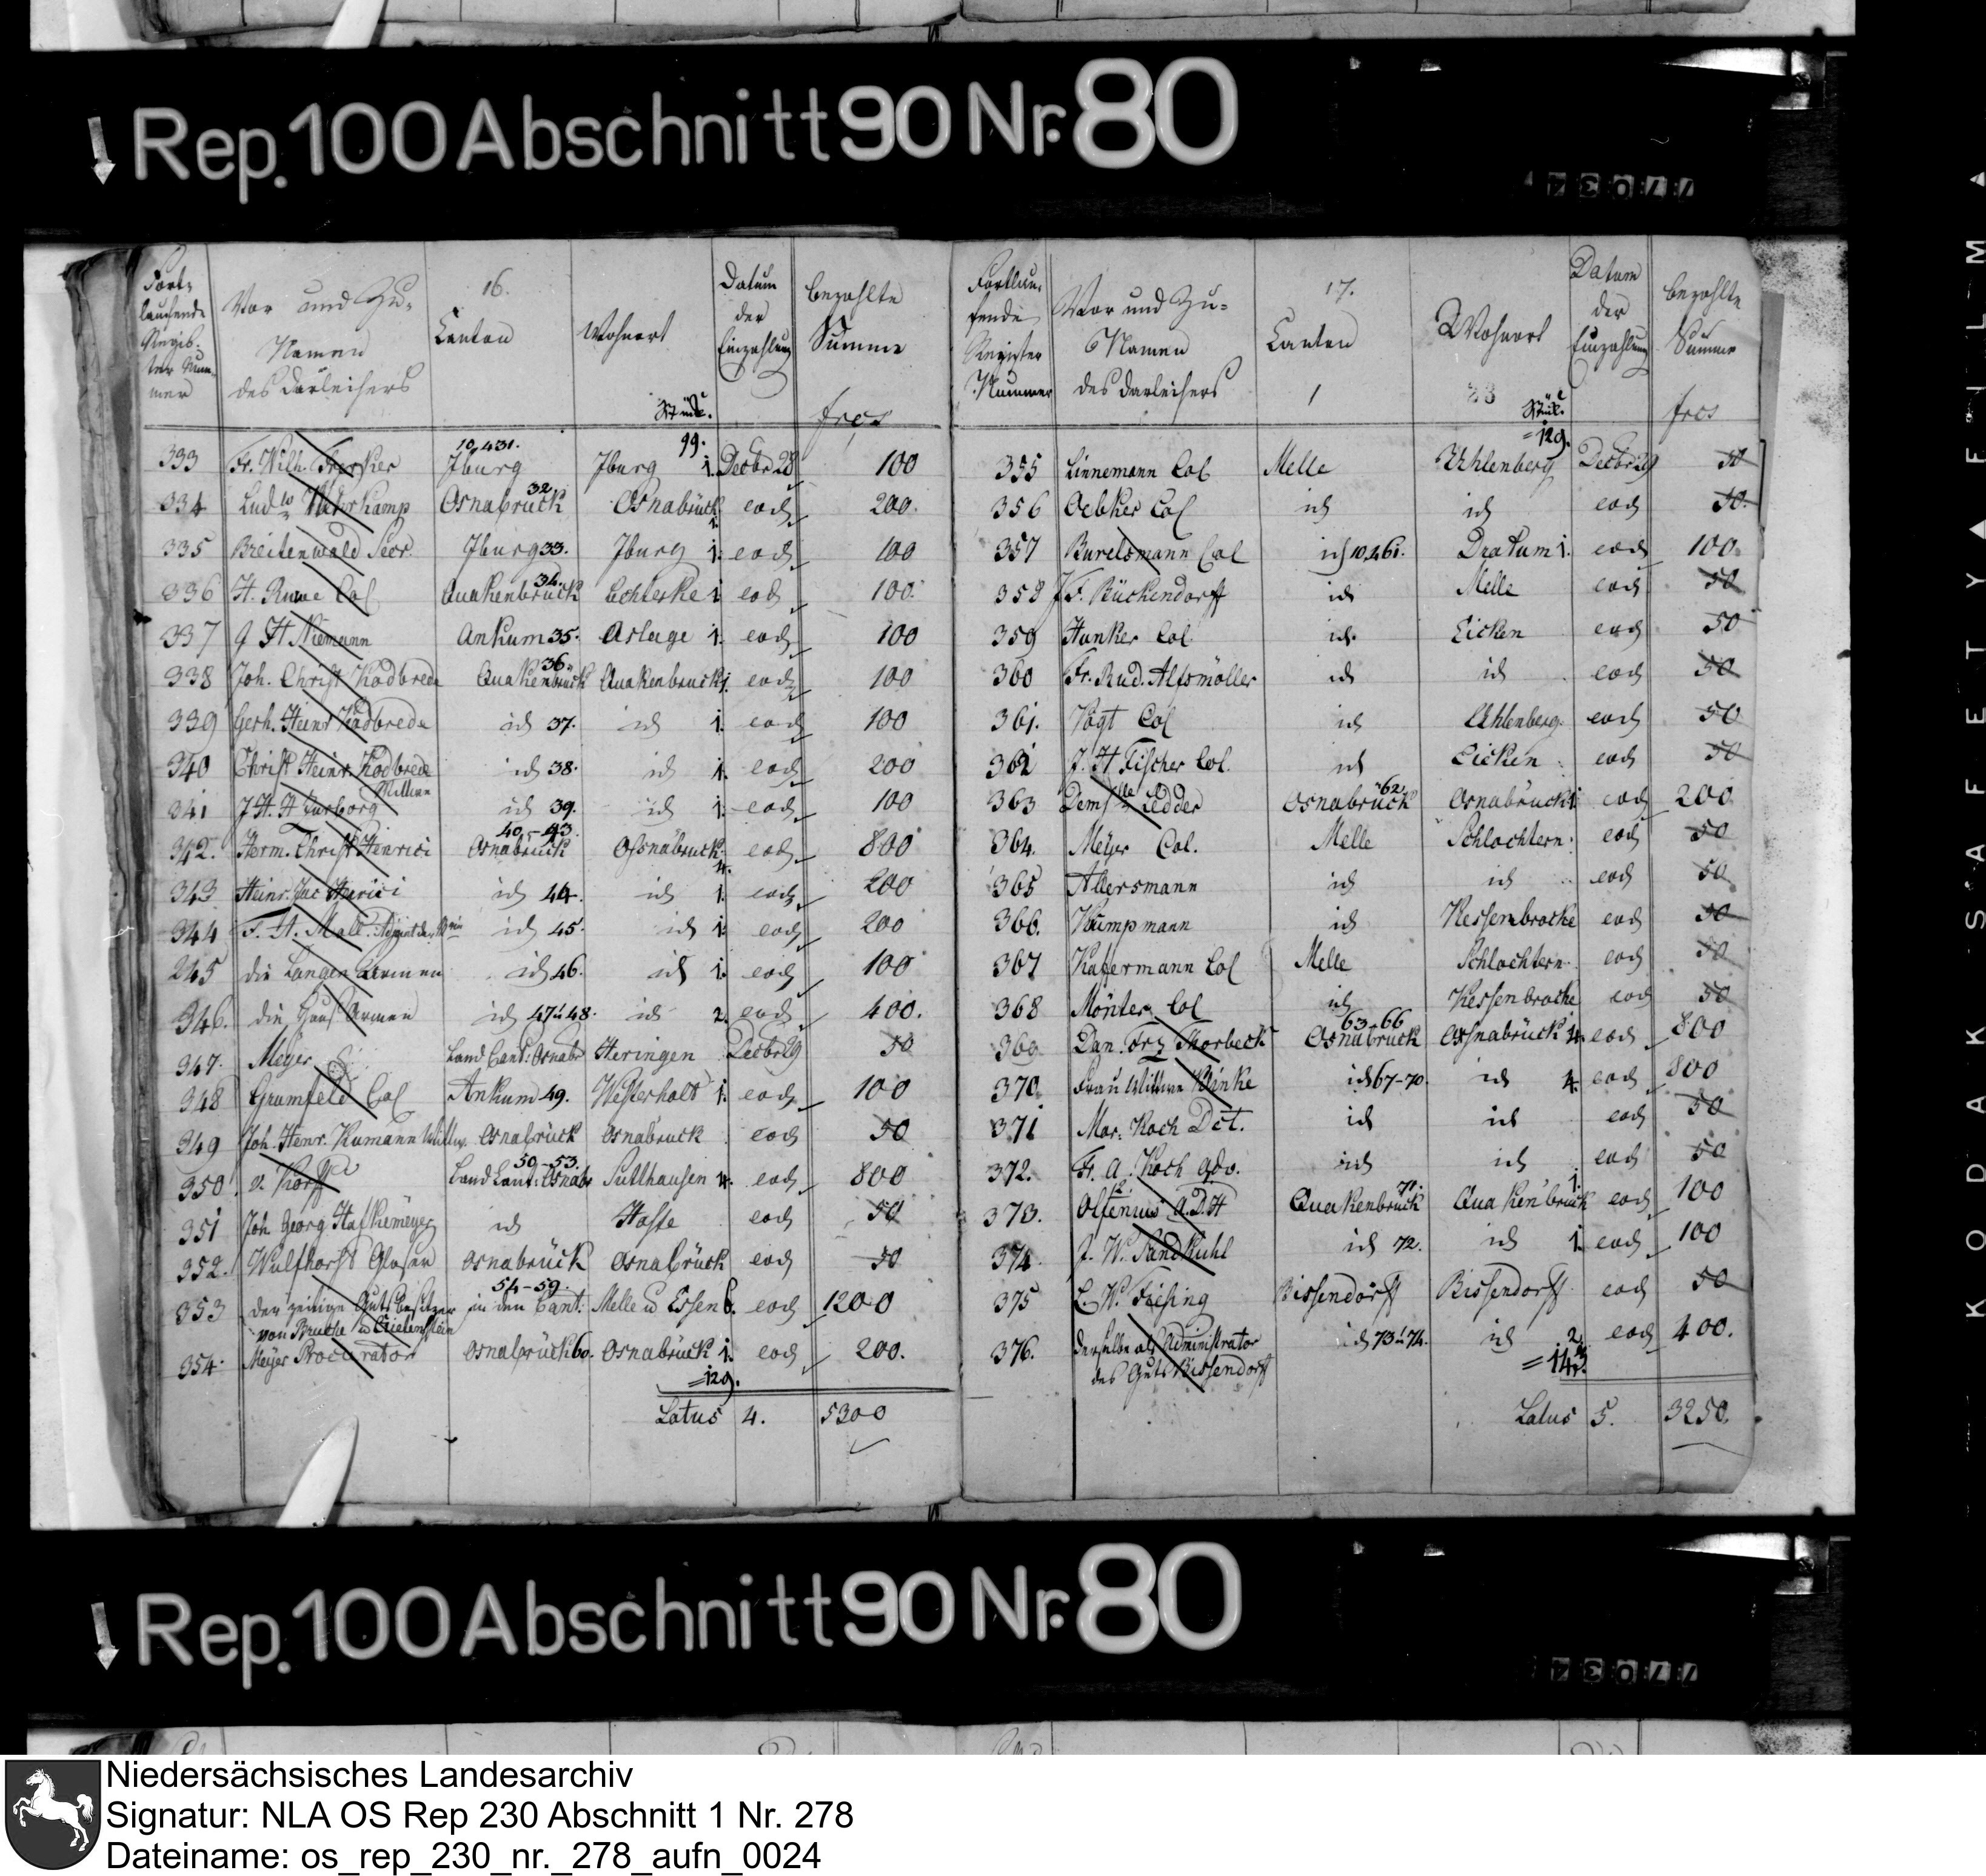 Rep. 100 Abschnitt 90 Nr. 80
77034
16.
Fort-
laufende
Regis-
ter Num-
mer
Vor und Zu-
Namen
des Darleihers
Canton
Wohnort
Stück.
Datum
der
Einzahlung
bezahlte
Summe
frcs
99.
333 Fr. Wilh. Frerker 10,431. Iburg Iburg 1. Decbr 28 100
334 Ludw Osnabrück 32 Osnabrück 1. eod 200.
335 Breitenwald Secr. Iburg 33. Iburg 1. eod 100
336 H. Ruwe Col Quakenbrück 34. 1. eod 100.
337 G H Niemann Ankum 35. Aslage 1. eod 100
338 Joh. Christ Kodbrede Quakenbrück 36 Quakenbruck 1. eod 100
339 Gerh. Heinr Kodbrede id 37. id 1. eod 100
340 Christ Heinr. Kodbrede id 38. id 1. eod 200
341 J H H id 39. id 1. eod 100
342. Herm. Christ Henrici 40-43. Osnabrück Osnabrück 4. eod 800
343 Heinr. Jac Henrici id 44. id 1. eod 200
344 F. A. id 45. id 1. eod 200
245 die Langen Armen id 46. id 1. eod 100
346. die Haus Armen id 47 u 48. id 2. eod 400.
347. Meyer Land Cant: Osnabr Heringen Decbr 29 50
348 Grumfeld Col Ankum 49. Westerholt 1. eod 100
349 Joh. Henr. Kumann Wittw. Osnabrück Osnabrück eod 50
350 v. Korff 50-53. Land Cant: Osnabr Sutthausen 4. eod 800
351 Joh. Georg Hafkemeyer id Haste eod 50
352. Wulfhorst Glaser Osnabrück Osnabrück eod 50
353 der zeitige Gutsbesitzer 54-59. in den Cant: Melle u Essen 6. eod 1200
von Bruche u
354. Meyer Procurator Osnabrück 60. Osnabrück 1. eod 200.
=129.
Latus 4. 5300
17.
Fortlau-
fende
Register
Nummer
Vor und Zu-
Namen
des Darleihers
Canton
Wohnort
Stück.
Datum
der
Einzahlung
bezahlte
Summe
frcs
=129.
355 Linnemann Col Melle Uhlenberg Decbr 29 50
356 Oebker Col id id eod 50.
357 Burelsmann Col id 10,461. Dratum 1. eod 100.
358 F. Bückendorff id Melle eod 50
359 Hunker Col id. Eicken eod 50
360 Fr. Rud. Alfsmöller id id eod 50
361. Vogt Col id Uhlenberg. eod 50
362 J. H Fischer Col. id Eicken eod 50
363 Demslle Ledder 62. Osnabrück Osnabrück 1 eod 200
364. Meyer Col. Melle Schlochtern. eod 50
365 Allersmann id id eod 50
366. Kümpmann id Kessenbrocke eod 50
367 Kassermann Col Melle Schlochtern. eod 50
368 Mönter Col id Kessenbrocke eod 50
369 Dan. Frz Thorbeck 63-66 Osnabrück Osnabrück 4. eod 800
370. Frau Wittwe id 67-70. id 4. eod 800
371 Mar. Koch Dct. id id eod 50
372. Fr. A. Koch adv. id id eod 50
373. Oltenius A.D.H 71. Quakenbrück Quakenbrück 1. eod 100
374. J. W. Sandkuhl id 72. id 1. eod 100
375 L. W. Fiesing Bissendorff Bissendorff eod 50
376. derselbe als Administrator id 73 u 74. id 2. eod 400.
des Guts Bissendorff
Latus 5. 3250.
Rep. 100 Abschnitt 90 Nr. 80
77034
KODAK SAFETY FILM
Niedersächsisches Landesarchiv
Signatur: NLA OS Rep 230 Abschnitt 1 Nr. 278
Dateiname: os_rep_230_nr._278_aufn_0024